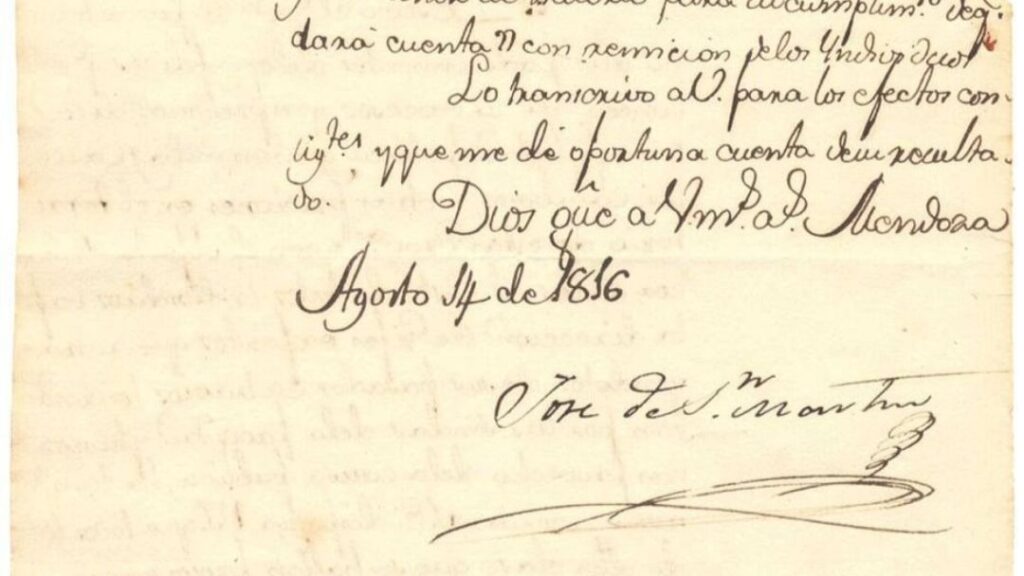 para su cumplim.to deq.
dará cuenta con remición delos Yndios
Lo transcrivo aV. para los efectos con-
sig.tes yque me dé oportuna cuenta desu resulta-
do. Dios gũe a V. m.s a.s Mendoza
Agosto 14 de 1816
José de S.n Martin